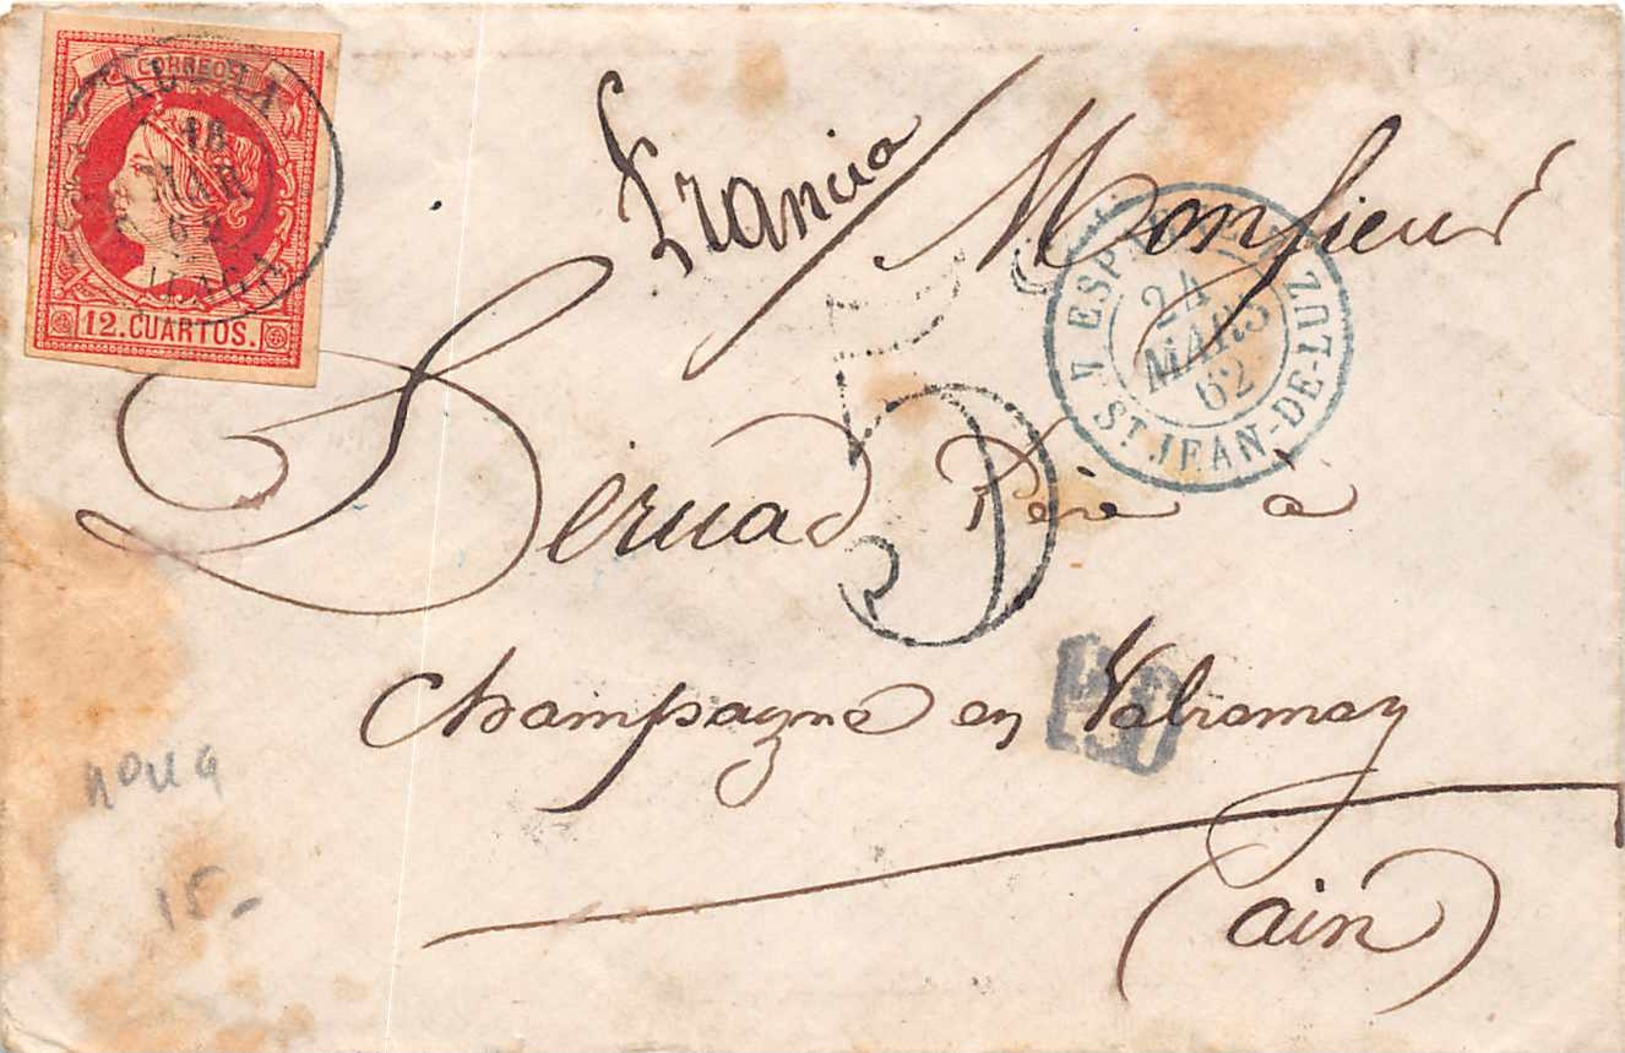 CORREOS
18
MAR
62
12. CUARTOS.
Francia
Monsieur
ESP
ST JEAN-DE-LUZ
24
MARS
62
5
Père à
Champagne en Valromey
PD
(ain)
15-